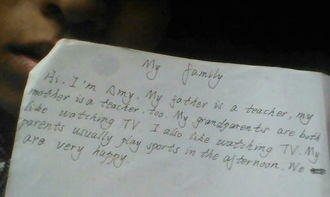 My family
Hi. I'm Amy. My father is a teacher, my
mother is a teacher, too. My grandparents are both
like watching TV. I also like watching TV. My
parents usually play sports in the afternoon. We
are very happy.